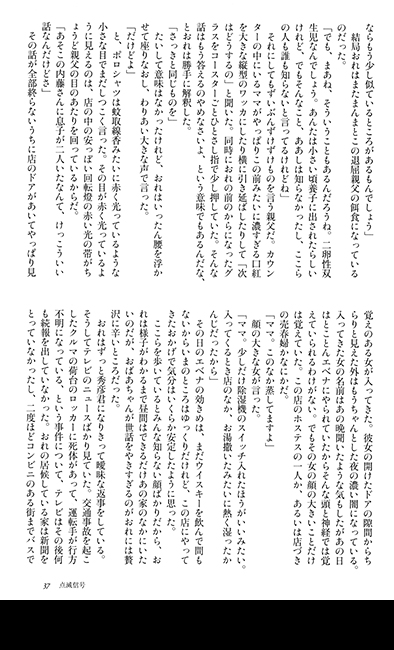 ならもう少し似ているところがあるもんでしょう」
　結局おれはまだまんまとこの退屈親父の餌食になっている
のだった。
「でも、まあね、そういうこともあるんだろうね。二卵性双
生児なんでしょう。あんたは小さい頃養子に出されたらしい
けれど、でもそんなこと、ああしは知らなかったし、ここら
の人も誰も知らないと言ってるけれどね」
　それにしてもずいぶんずけずけものを言う親父だ。カウン
ターの中にいるママがやっぱりこの前みたいに濃すぎる口紅
を大きな縦型のワッカにしたり横に引き延ばしたりして「次
はどうするの」と聞いた。同時におれの前のからになったグ
ラスをコースターごとひとさし指で少し押していた。そんな
話はもう答えるのやめなさいよ、という意味でもあるんだな、
とおれは勝手に解釈した。
「さっきと同じものを」
　たいして意味はなかったけれど、おれはいったん腰を浮か
せて座りなおし、わりあい大きな声で言った。
「だけどよ」
　と、ポロシャツは蚊取線香みたいに赤く光っているような
小さな目でまだしつこく言った。その目が赤く光っているよ
うに見えるのは、店の中の安っぽい回転燈の赤い光の帯がち
ょうど親父の目のあたりを回っているからだ。
「あそこの内藤さんに息子が二人いたなんて、けっこういい
話なんだけどさ」
　その話が全部終らないうちに店のドアがあいてやっぱり見
覚えのある女が入ってきた。彼女の開けたドアの隙間からち
らりと見えた外はもうちゃんとした夜の濃い闇になっている。
入ってきた女の名前はあの晩聞いたような気もしたがあの日
はとことんエベナにやられていたからそんな頭と神経では覚
えていられるわけがない。でもその女の顔の大きいことだけ
は覚えていた。この店のホステスの一人か、あるいは店づき
の売春婦かなにかだ。
「ママ。このなか蒸してますよ」
　顔の大きな女が言った。
「ママ。少しだけ除湿機のスイッチ入れたほうがいいみたい。
入ってくるとき店のなか、お湯撒いたみたいに熱く湿ったか
んじだったから」
　その日のエベナの効きめは、まだウイスキーを飲んで間も
ないからいまのところはゆっくりだけれど、この店にやって
きたおかげで気分はいくらか安定したように思った。
　ここらを歩いているとみんな知らない顔ばかりだから、お
れは様子がわかるまで昼間はできるだけあの家のなかにいた
いのだが、おばあちゃんが世話をやきすぎるのがおれには贅
沢に辛いところだった。
　おれはずっと秀彦君になりきって曖昧な返事をしている。
そうしてテレビのニュースばかり見ていた。交通事故を起こ
したクルマの荷台のロッカーに死体があって、運転手が行方
不明になっている、という事件について、テレビはその後何
も続報を出していなかった。おれの居候している家は新聞を
とっていなかったし、二度ほどコンビニのある街までバスで
37　点滅信号